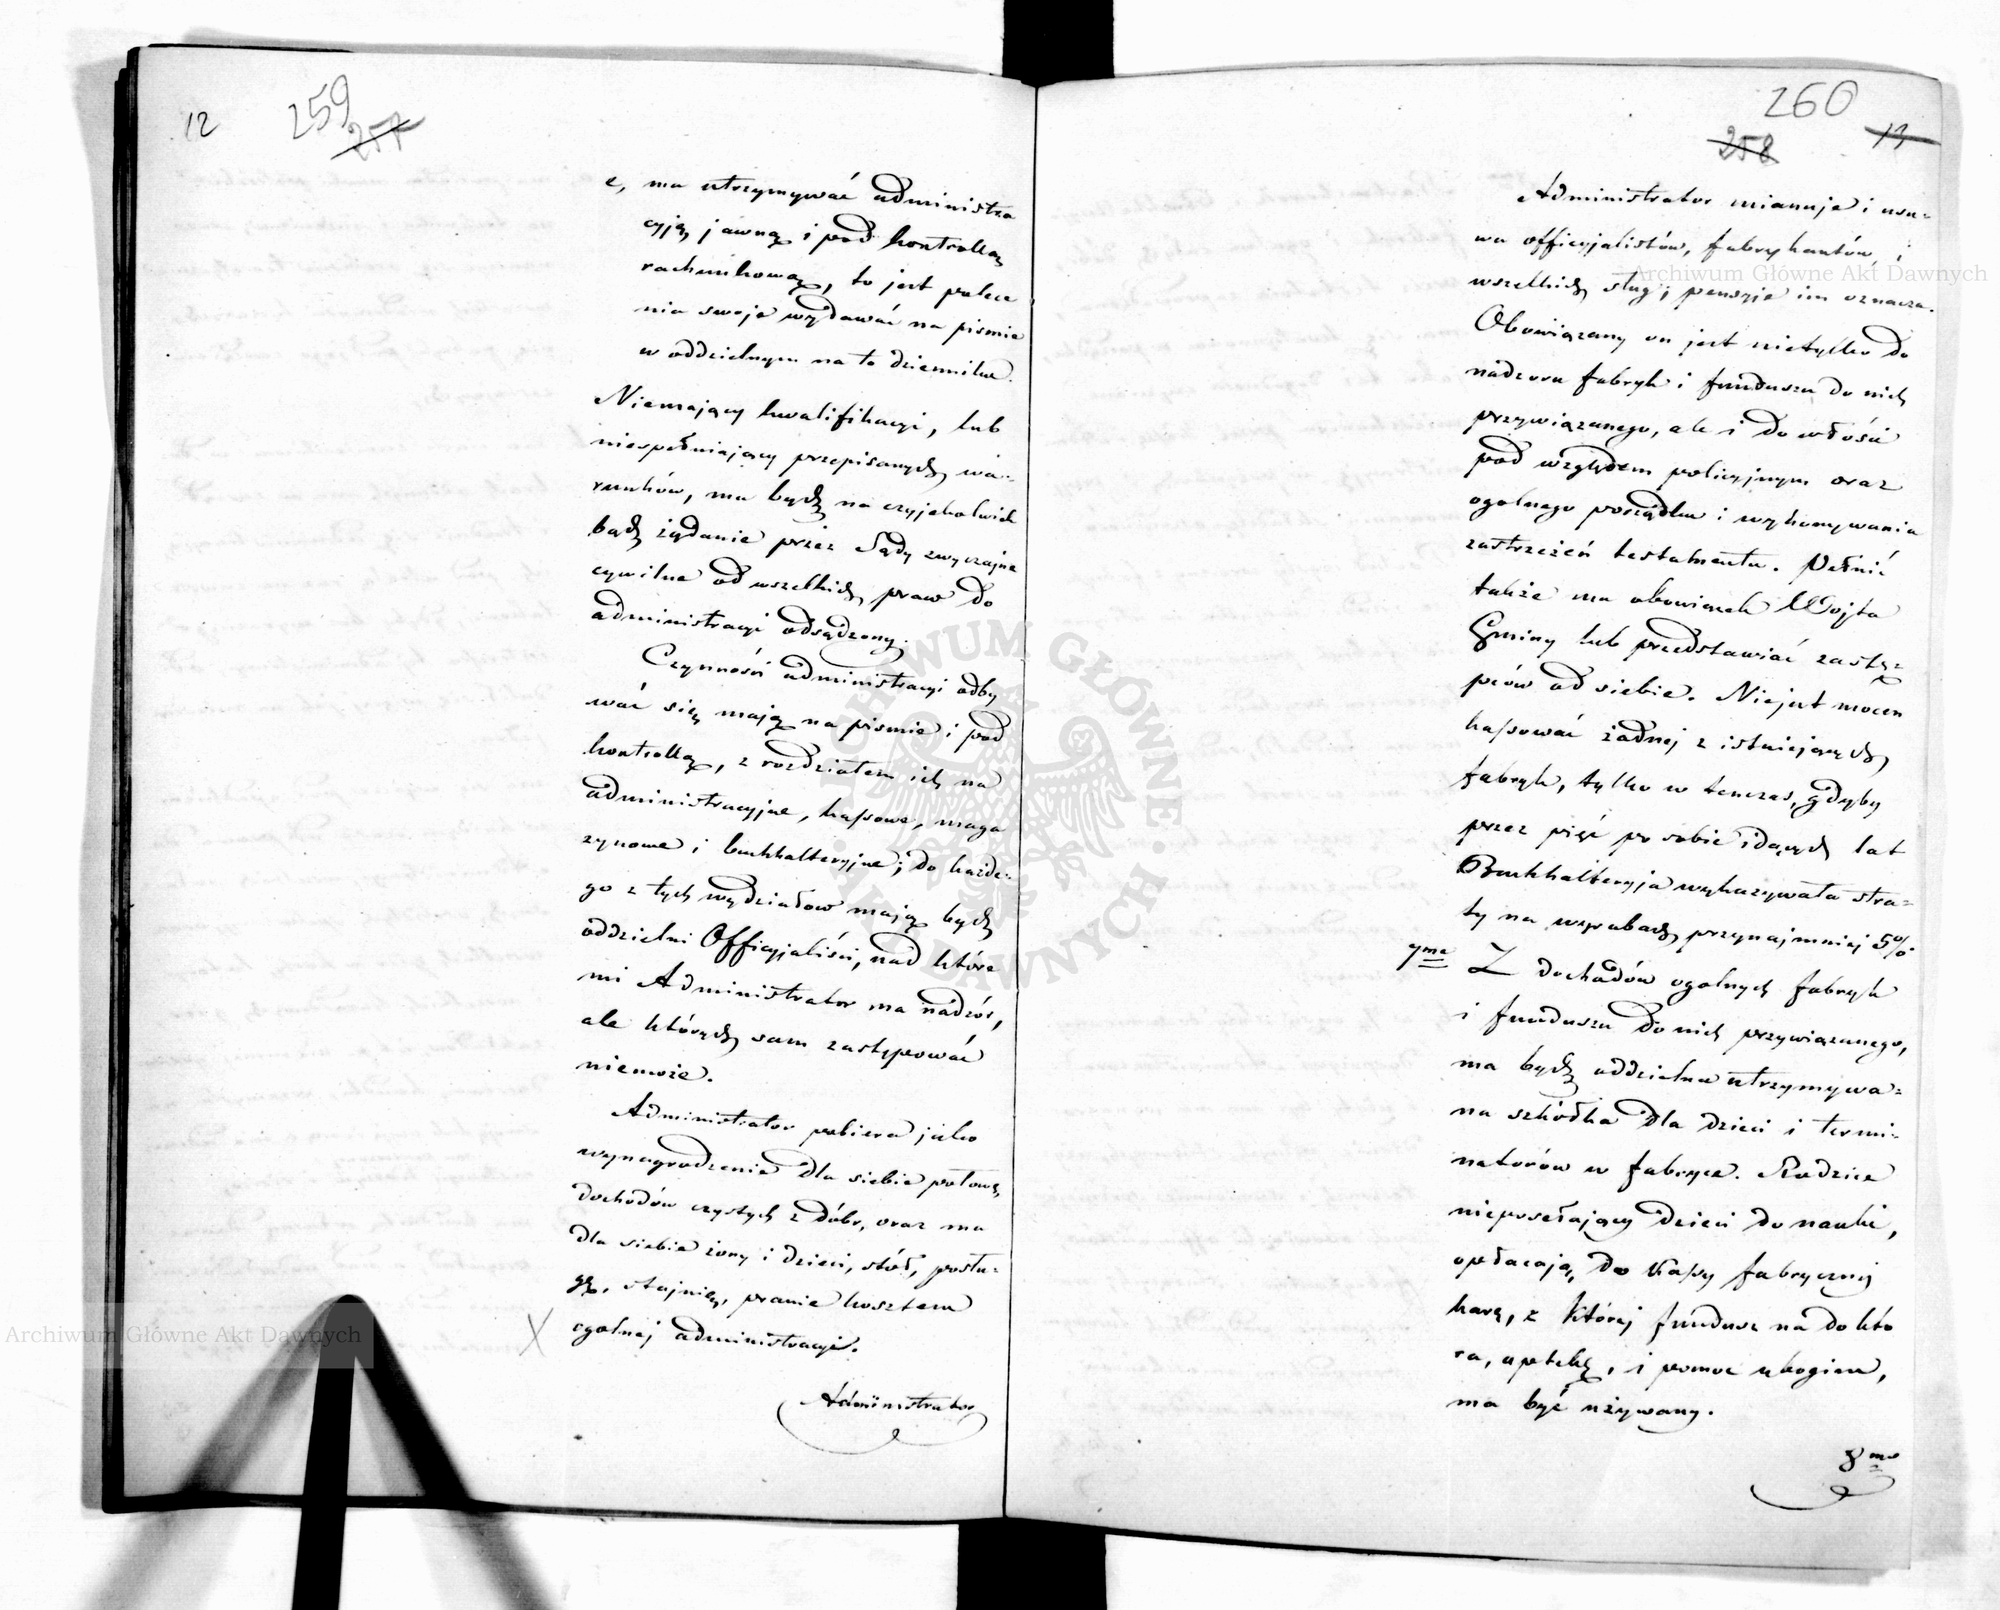 12
259
257
e, ma utrzymywać administra
cyją jawną i pod kontrollą
rachunkową, to jest polece
nia swoje wydawać na pismie
w oddzielnym na to dzienniku.
Niemający kwalifikacyi, lub
niespełniający przepisanych wa-
runków, ma bydź na czyjekolwiek
bądź żądanie przez Sądy zwyczajne
cywilne od wszelkich praw do
administracyi odsądzony.
Czynności administracyi odby
wać się mają na pismie i pod
kontrollą, z rozdziałem ich na
administracyjne, kassowe, maga
zynowe i buchhalteryjne; do każde-
go z tych wydziałow mają bydź
oddzielni Officyjaliści, nad które
mi Administrator ma nadzór,
ale których sam zastępować
niemoże.
Administrator pobiera jako
wynagrodzenie dla siebie połowę
dochodów czystych z dóbr, oraz ma
dla siebie żony i dzieci, stół, posłu-
gę, stajnię, pranie kosztem
ogolnej administracyi.
X
Administrator
260
258
13
Administrator mianuje i usu-
wa officyjalistów, fabrykantów, i
wszelkich sług, pensyje im oznacza.
Obowiązany on jest nietylko do
nadzoru fabryk i funduszu do nich
przywiązanego, ale i do włości
pod względem policyjnym oraz
ogolnego porządku i wykonywania
zastrzeżeń testamentu. Pełnić
także ma obowiązek Wojta
Gminy lub przedstawiać zastę-
pców od siebie. Niejest mocen
kassować żadnej z istniejących
fabryk, tylko w tenczas, gdyby
przez pięć po sobie idących lat
Buchhalteryja wykazywała stra-
ty na wyrobach przynajmniej 5%
7me Z dochodów ogolnych fabryk
i funduszu do nich przywiązanego,
ma bydź oddzielna utrzymywa-
na szkółka dla dzieci i termi-
natorów w fabryce. Rodzice
nieposełający dzieci do nauki,
opłacają do Kassy fabrycznej
karę, z której fundusz na dokto
ra, aptekę, i pomoc ubogim,
ma być używany.
8mo
Archiwum Główne Akt Dawnych
Archiwum Główne Akt Dawnych
ARCHIWUM GŁÓWNE · AKT DAWNYCH ·